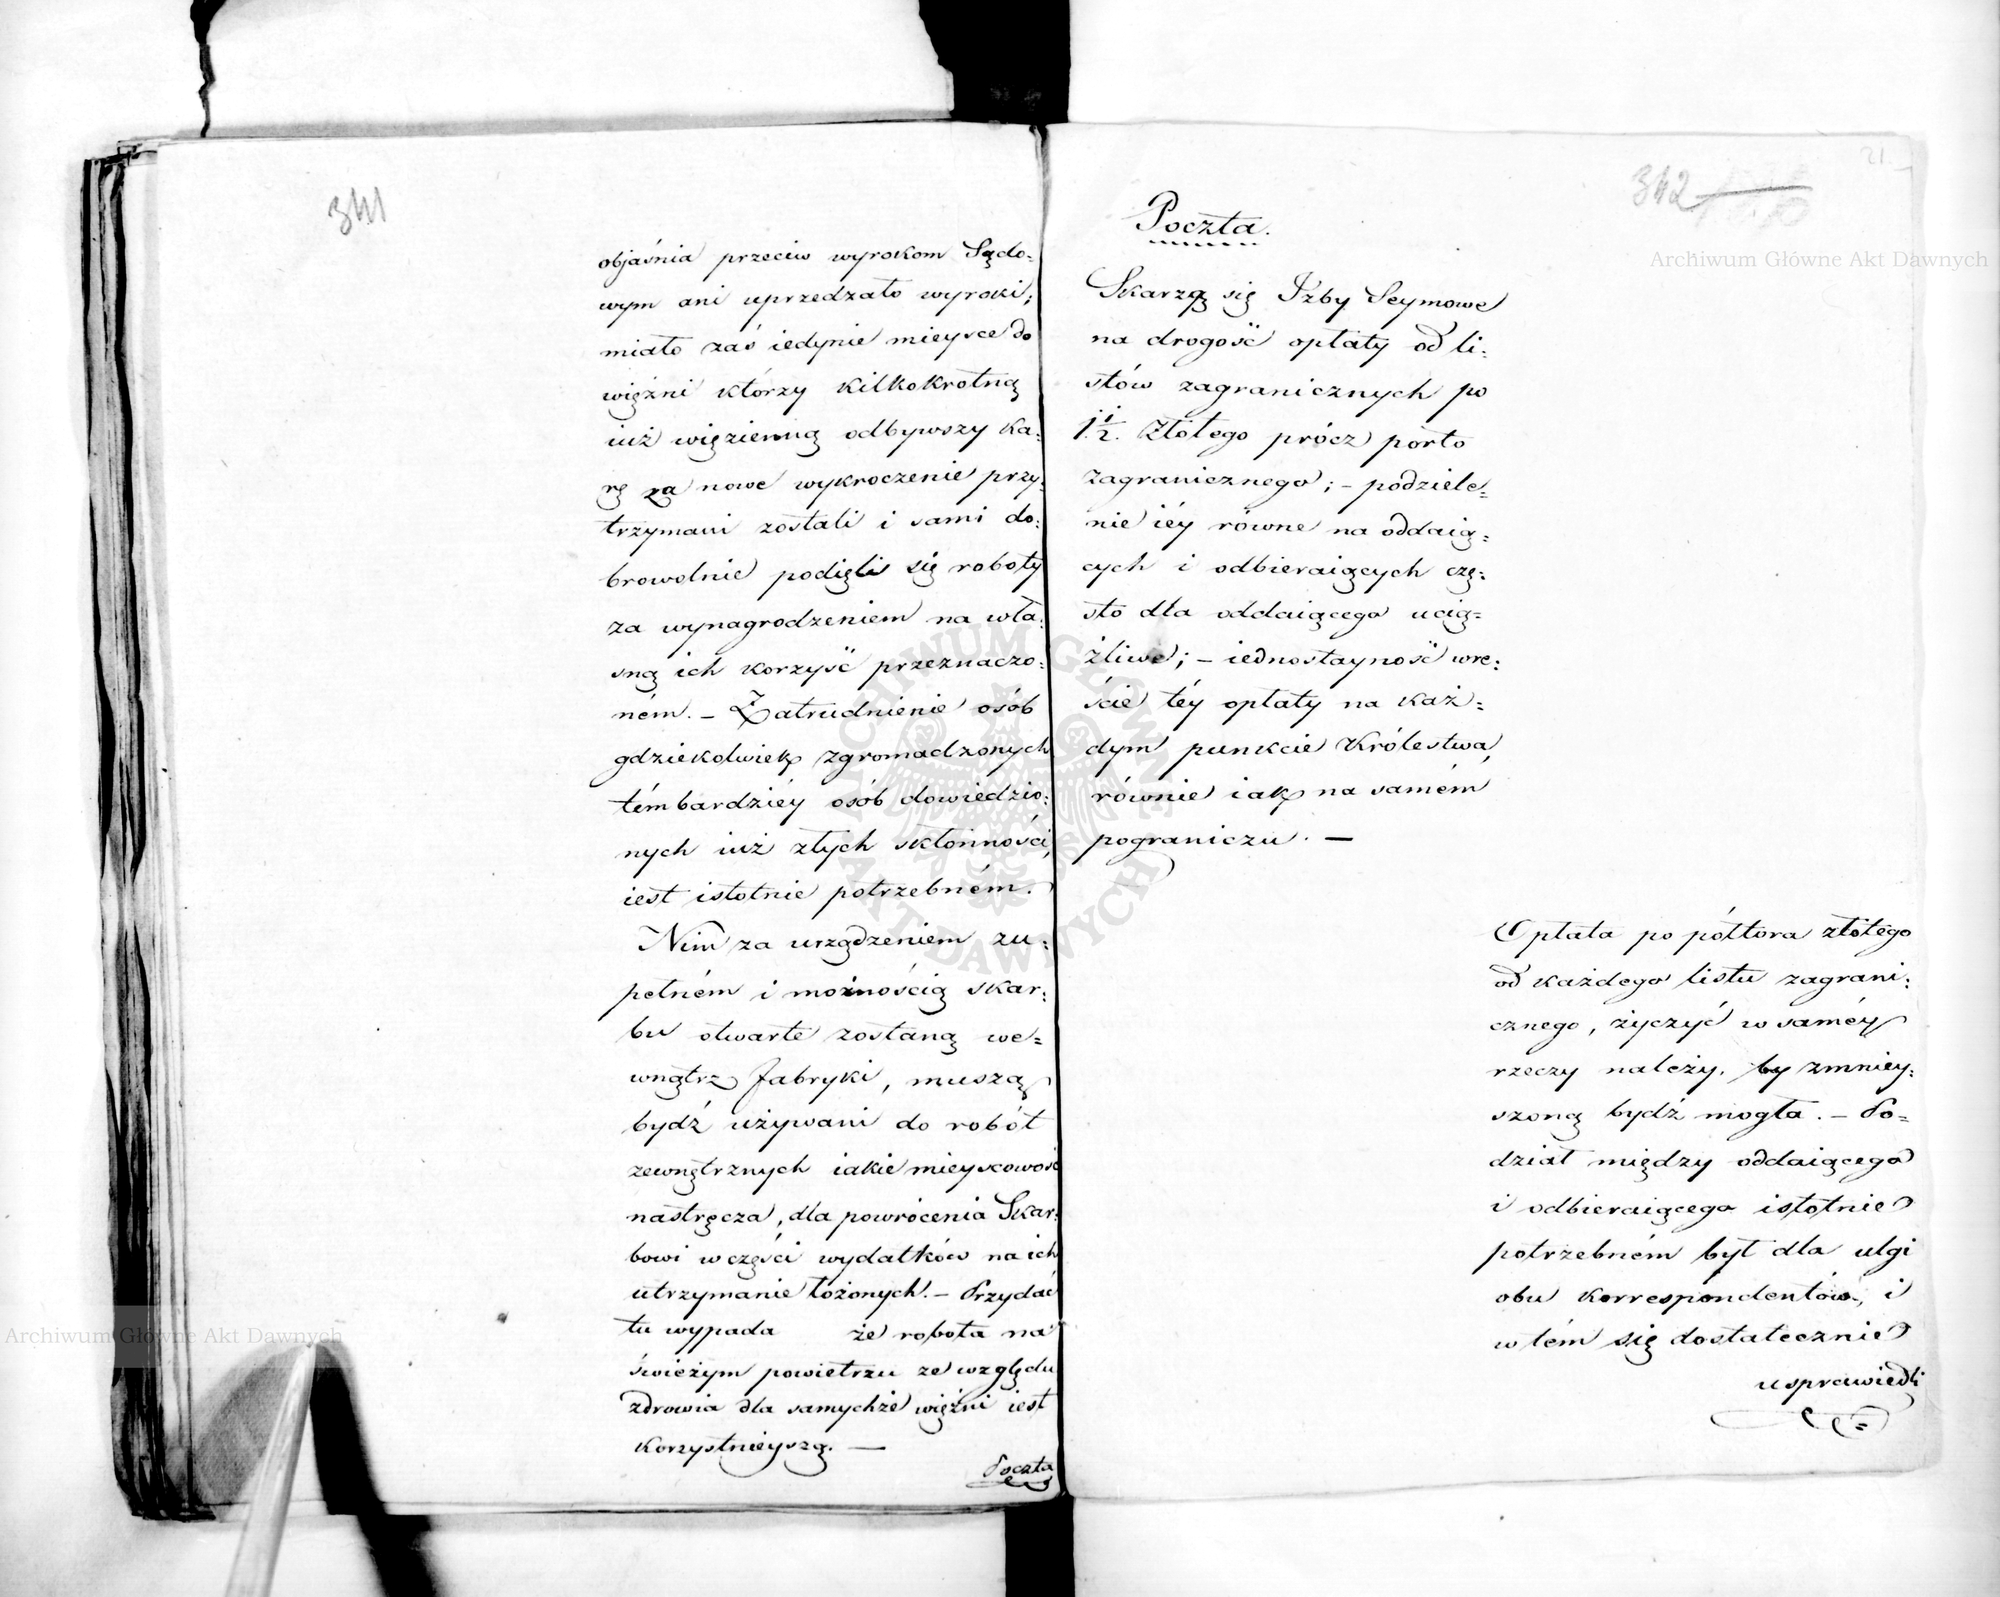 341
objaśnia przeciw wyrokom Sądo=
wym ani uprzedzało wyroki;
miało zaś iedynie mieysce do
więźni którzy kilkokrotną
iuż więzienną odbywszy ka=
rę za nowe wykroczenie przy=
trzymani zostali i sami do=
browolnie podięli się roboty
za wynagrodzeniem na wła=
sną ich korzyść przeznaczo=
ném. – Zatrudnienie osób
gdziekolwiek zgromadzonych
tém bardziéy osób dowiedzio=
nych iuż złych skłonności,
iest istotnie potrzebném.
Nim za urządzeniem zu=
pełném i możnością Skar=
bu otwarte zostaną we=
wnątrz fabryki, muszą
bydź używani do robót
zewnętrznych iakie mieyscowość
nastręcza, dla powrócenia Skar=
bowi w części wydatków na ich
utrzymanie łożonych. – Przydać
tu wypada że robota na
świeżym powietrzu ze względu
zdrowia dla samychże więźni iest
korzystnieyszą. —
Poczta
21
342
Poczta.
Skarzą się Izby Seymowe
na drogość opłaty od li=
stów zagranicznych po
1 1/2. Złotego prócz porto
zagranicznego; – podziele=
nie iéy równe na oddaią=
cych i odbieraiących czę=
sto dla oddaiącego ucią=
żliwe; – iednostayność wre=
ście téy opłaty na każ=
dym punkcie Królestwa,
równie iak na samém
pograniczu. —
Opłata po półtora złotego
od każdego listu zagrani=
cznego, życzyć w saméy
rzeczy należy, by zmniey=
szoną bydź mogła. – Po=
dział między oddaiącego
i odbieraiącego istotnie
potrzebném był dla ulgi
obu korrespondentów, i
w tém się dostatecznie
usprawiedli
=
Archiwum Główne Akt Dawnych
Archiwum Główne Akt Dawnych
ARCHIWUM GŁÓWNE AKT DAWNYCH